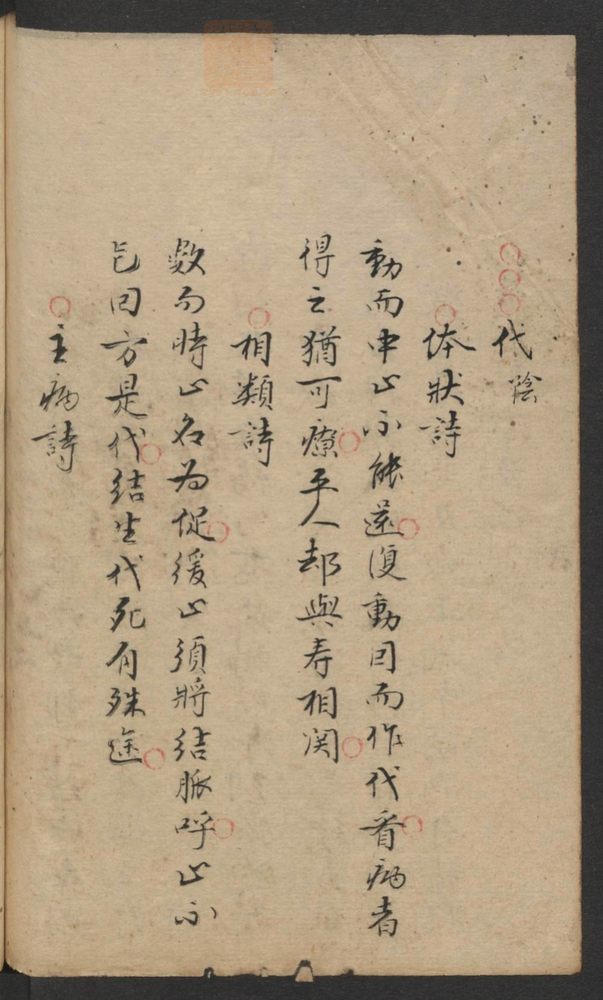 代 陰
体狀詩
動而中止不能还復動因而作代看病者
得之猶可療平人却與寿相関
相類詩
数而時止名为促緩止須將結脈呼止不
能回方是代結生代死有殊途
主病詩